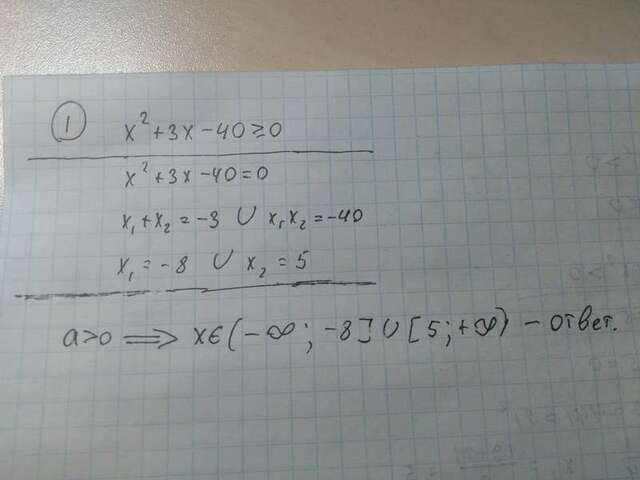 1 x²+3x-40≥0
x²+3x-40=0
x₁+x₂=-3 ∪ x₁x₂=-40
x₁=-8 ∪ x₂=5
a>0 ⟹ x∈(-∞; -8]∪[5;+∞) - ответ.